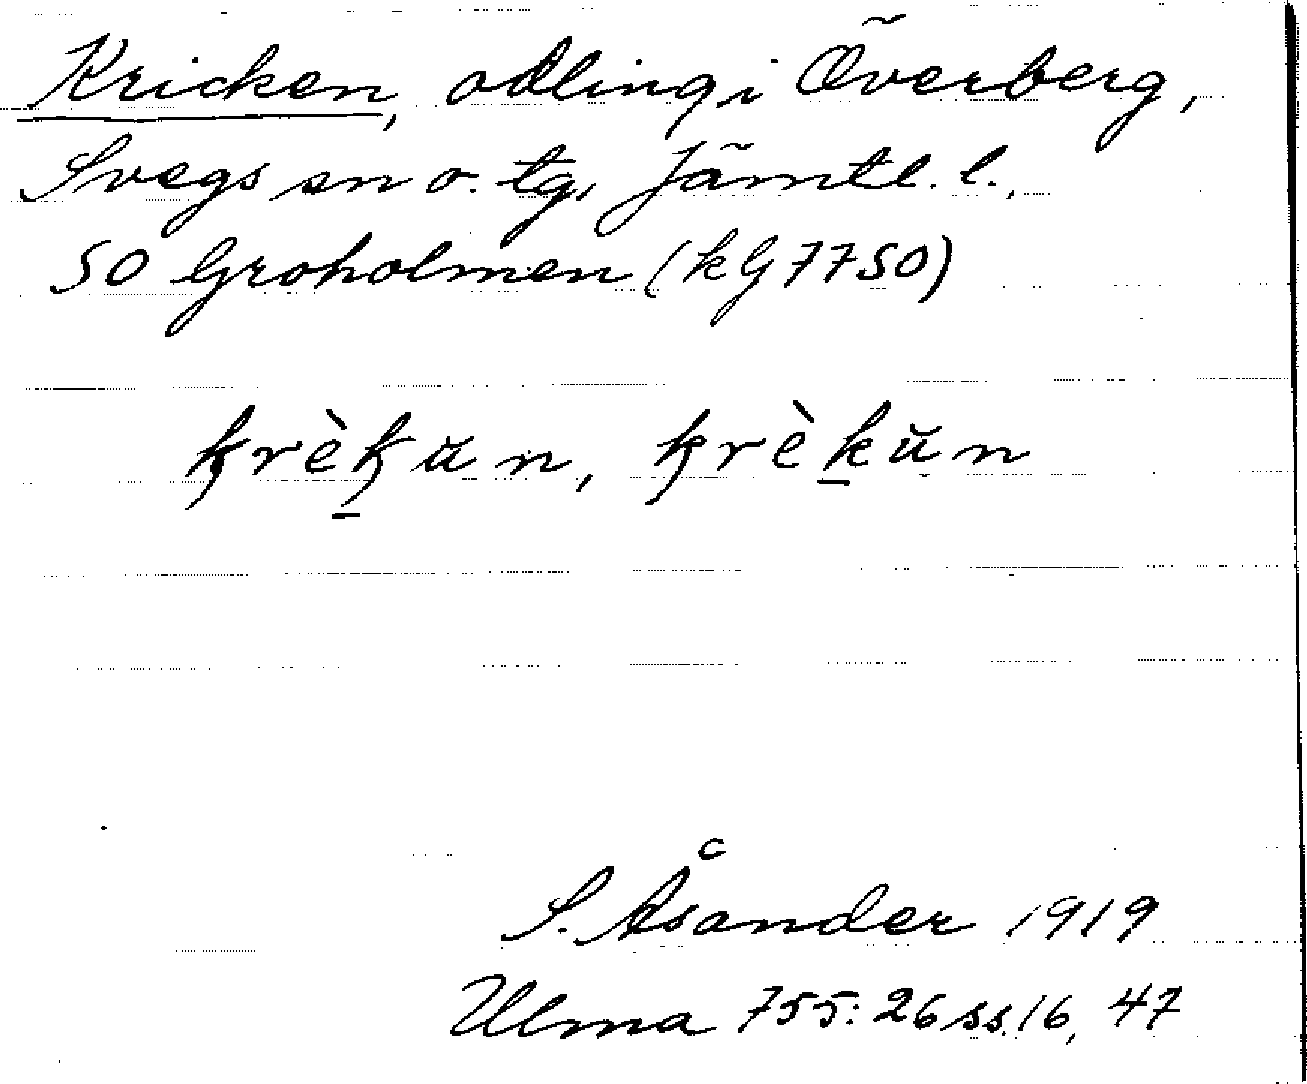 Kricken, odling i Överberg,
Svegs sn o. tg, Jämtl. l.,
SO Groholmen (kG 7750)
ƙrèƙ̱ŭn, ƙrèḵŭn
S. Åsander 1919
Ulma 755: 26 ss. 16, 47